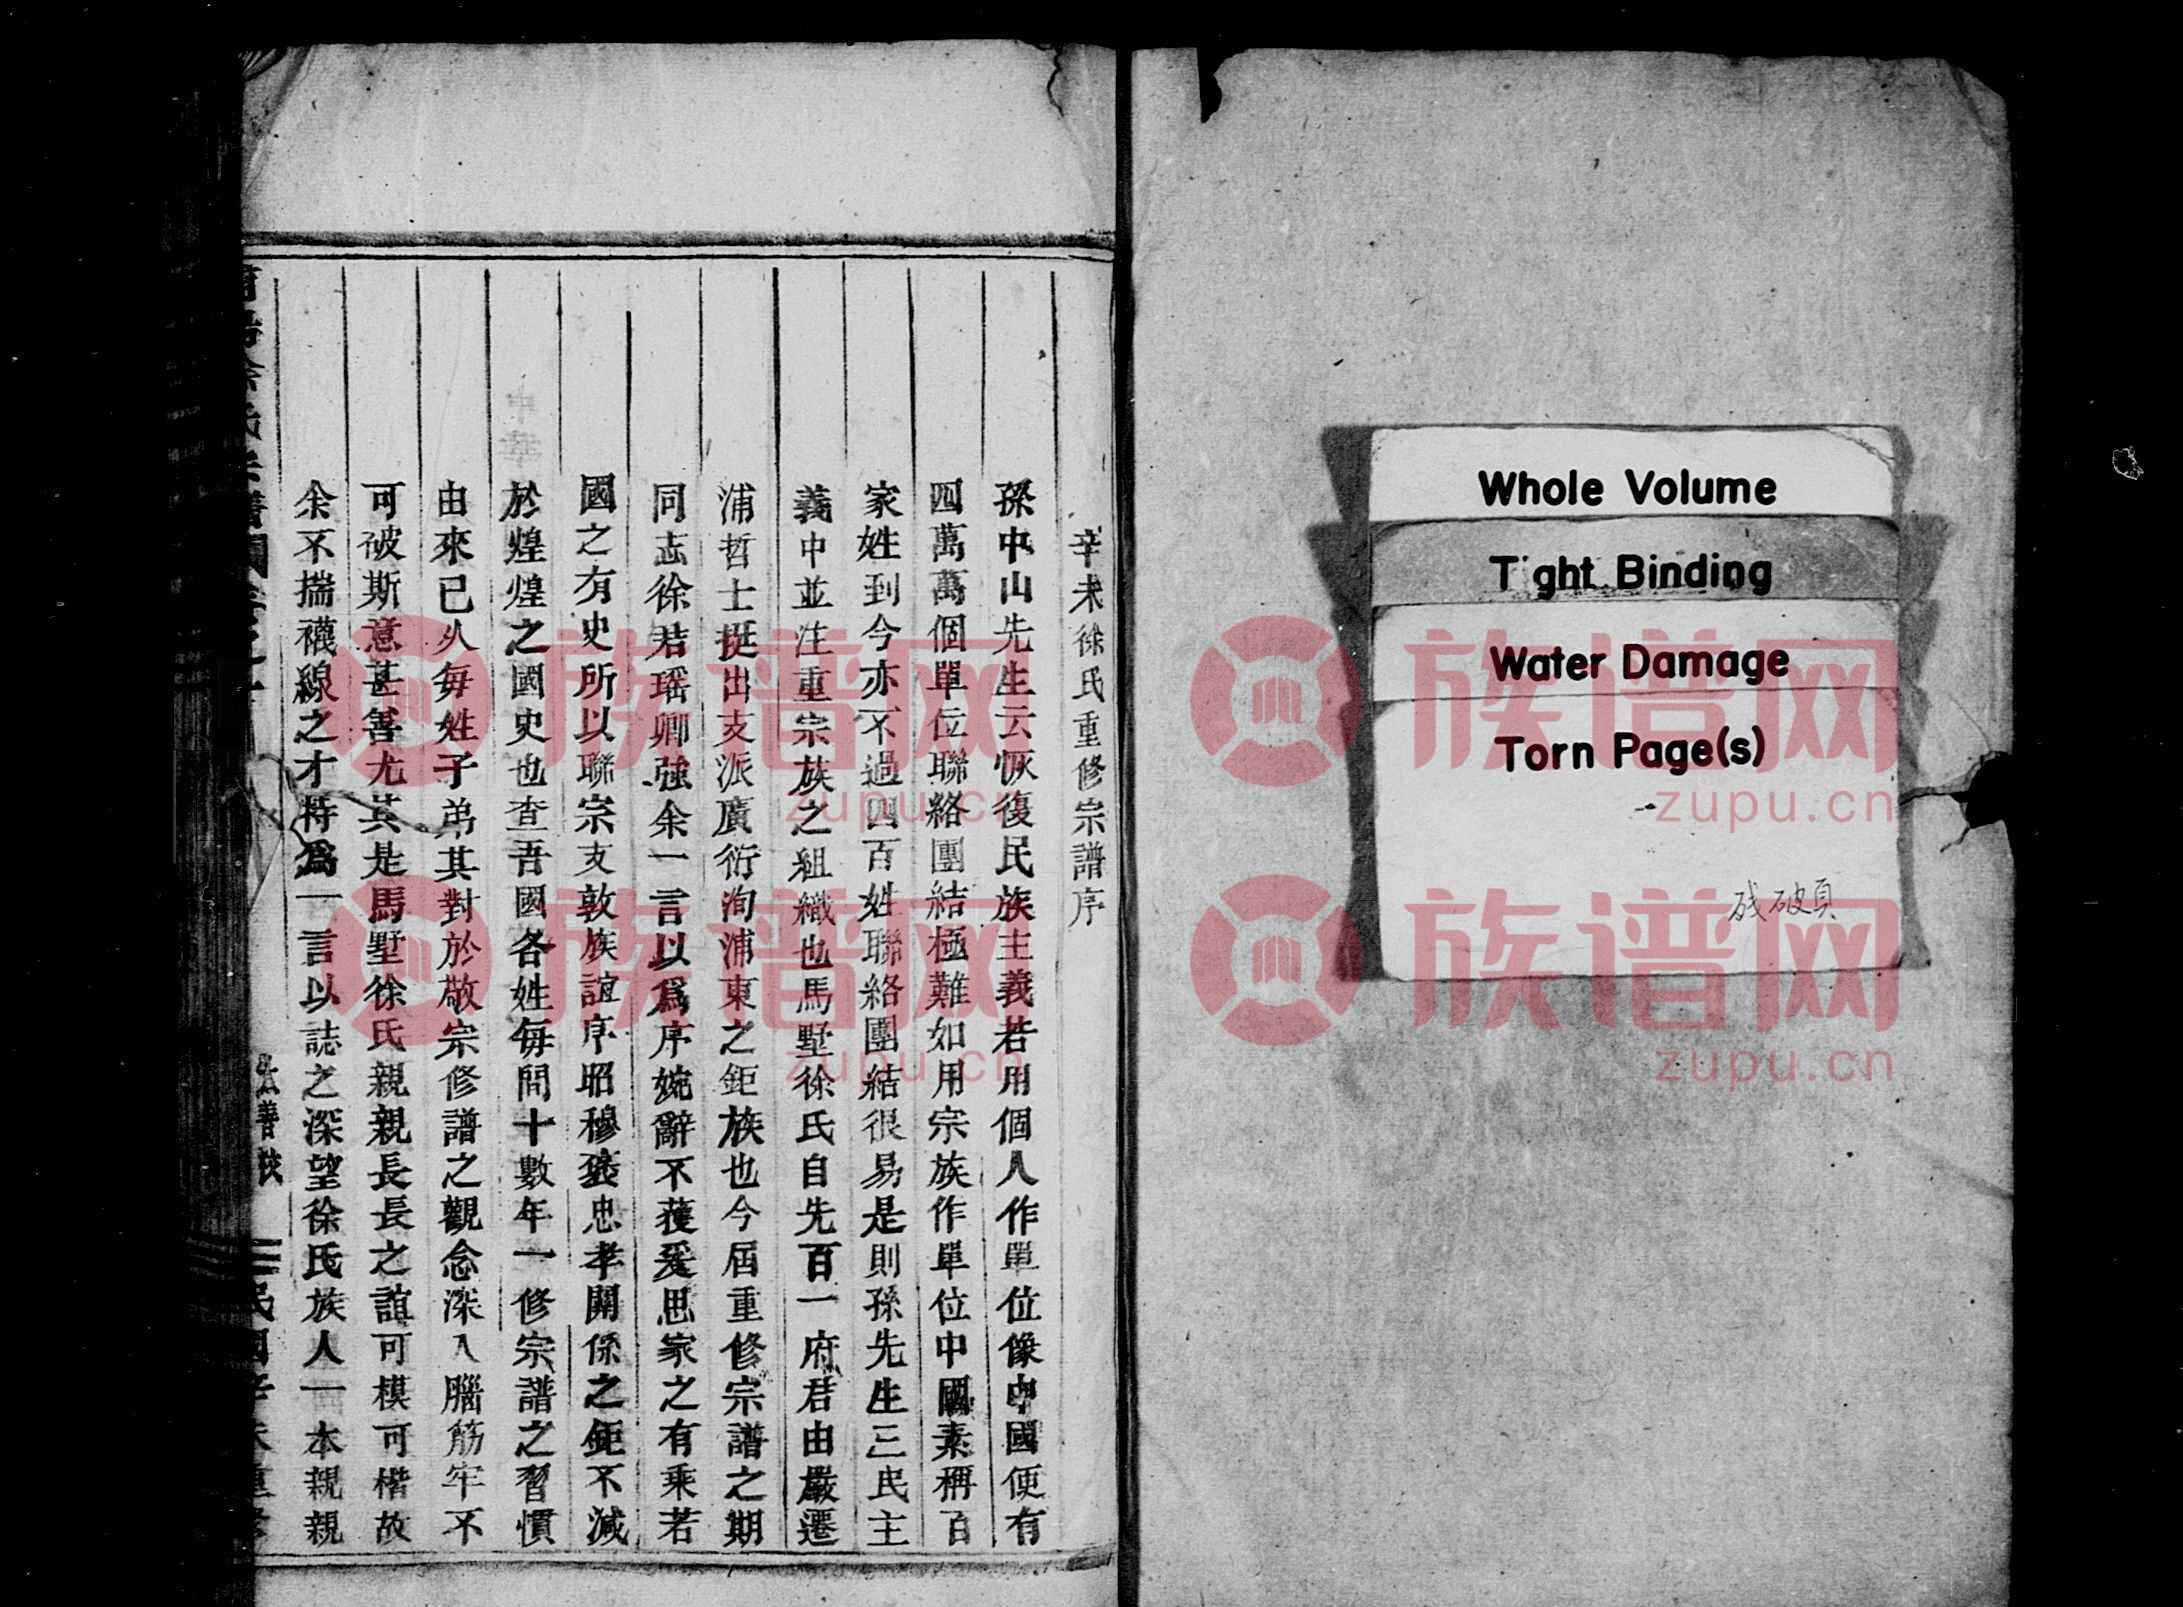 Whole Volume
Tight Binding
Water Damage
Torn Page(s)
残破頁
辛未徐氏重修宗譜序
孫中山先生云恢復民族主義若用個人作單位像中國便有
四萬萬個單位聯絡團結極難如用宗族作單位中國素稱百
家姓到今亦不過四百姓聯絡團結很易是則孫先生三民主
義中並注重宗族之組織也馬墅徐氏自先百一府君由嚴遷
浦哲士挺出支派廣衍洵浦東之鉅族也今屆重修宗譜之期
同志徐君瑶卿強余一言以爲序婉辭不獲爰思家之有乘若
國之有史所以聯宗支敦族誼序昭穆褒忠孝關係之鉅不減
於煌煌之國史也查吾國各姓每間十數年一修宗譜之習慣
由來已久每姓子弟其對於敬宗修譜之觀念深入腦筋牢不
可破斯意甚善尤其是馬墅徐氏親親長長之誼可模可楷故
余不揣襪線之才特爲一言以誌之深望徐氏族人一本親親
族谱网
zupu.cn
族谱网
zupu.cn
族谱网
zupu.cn
族谱网
zupu.cn